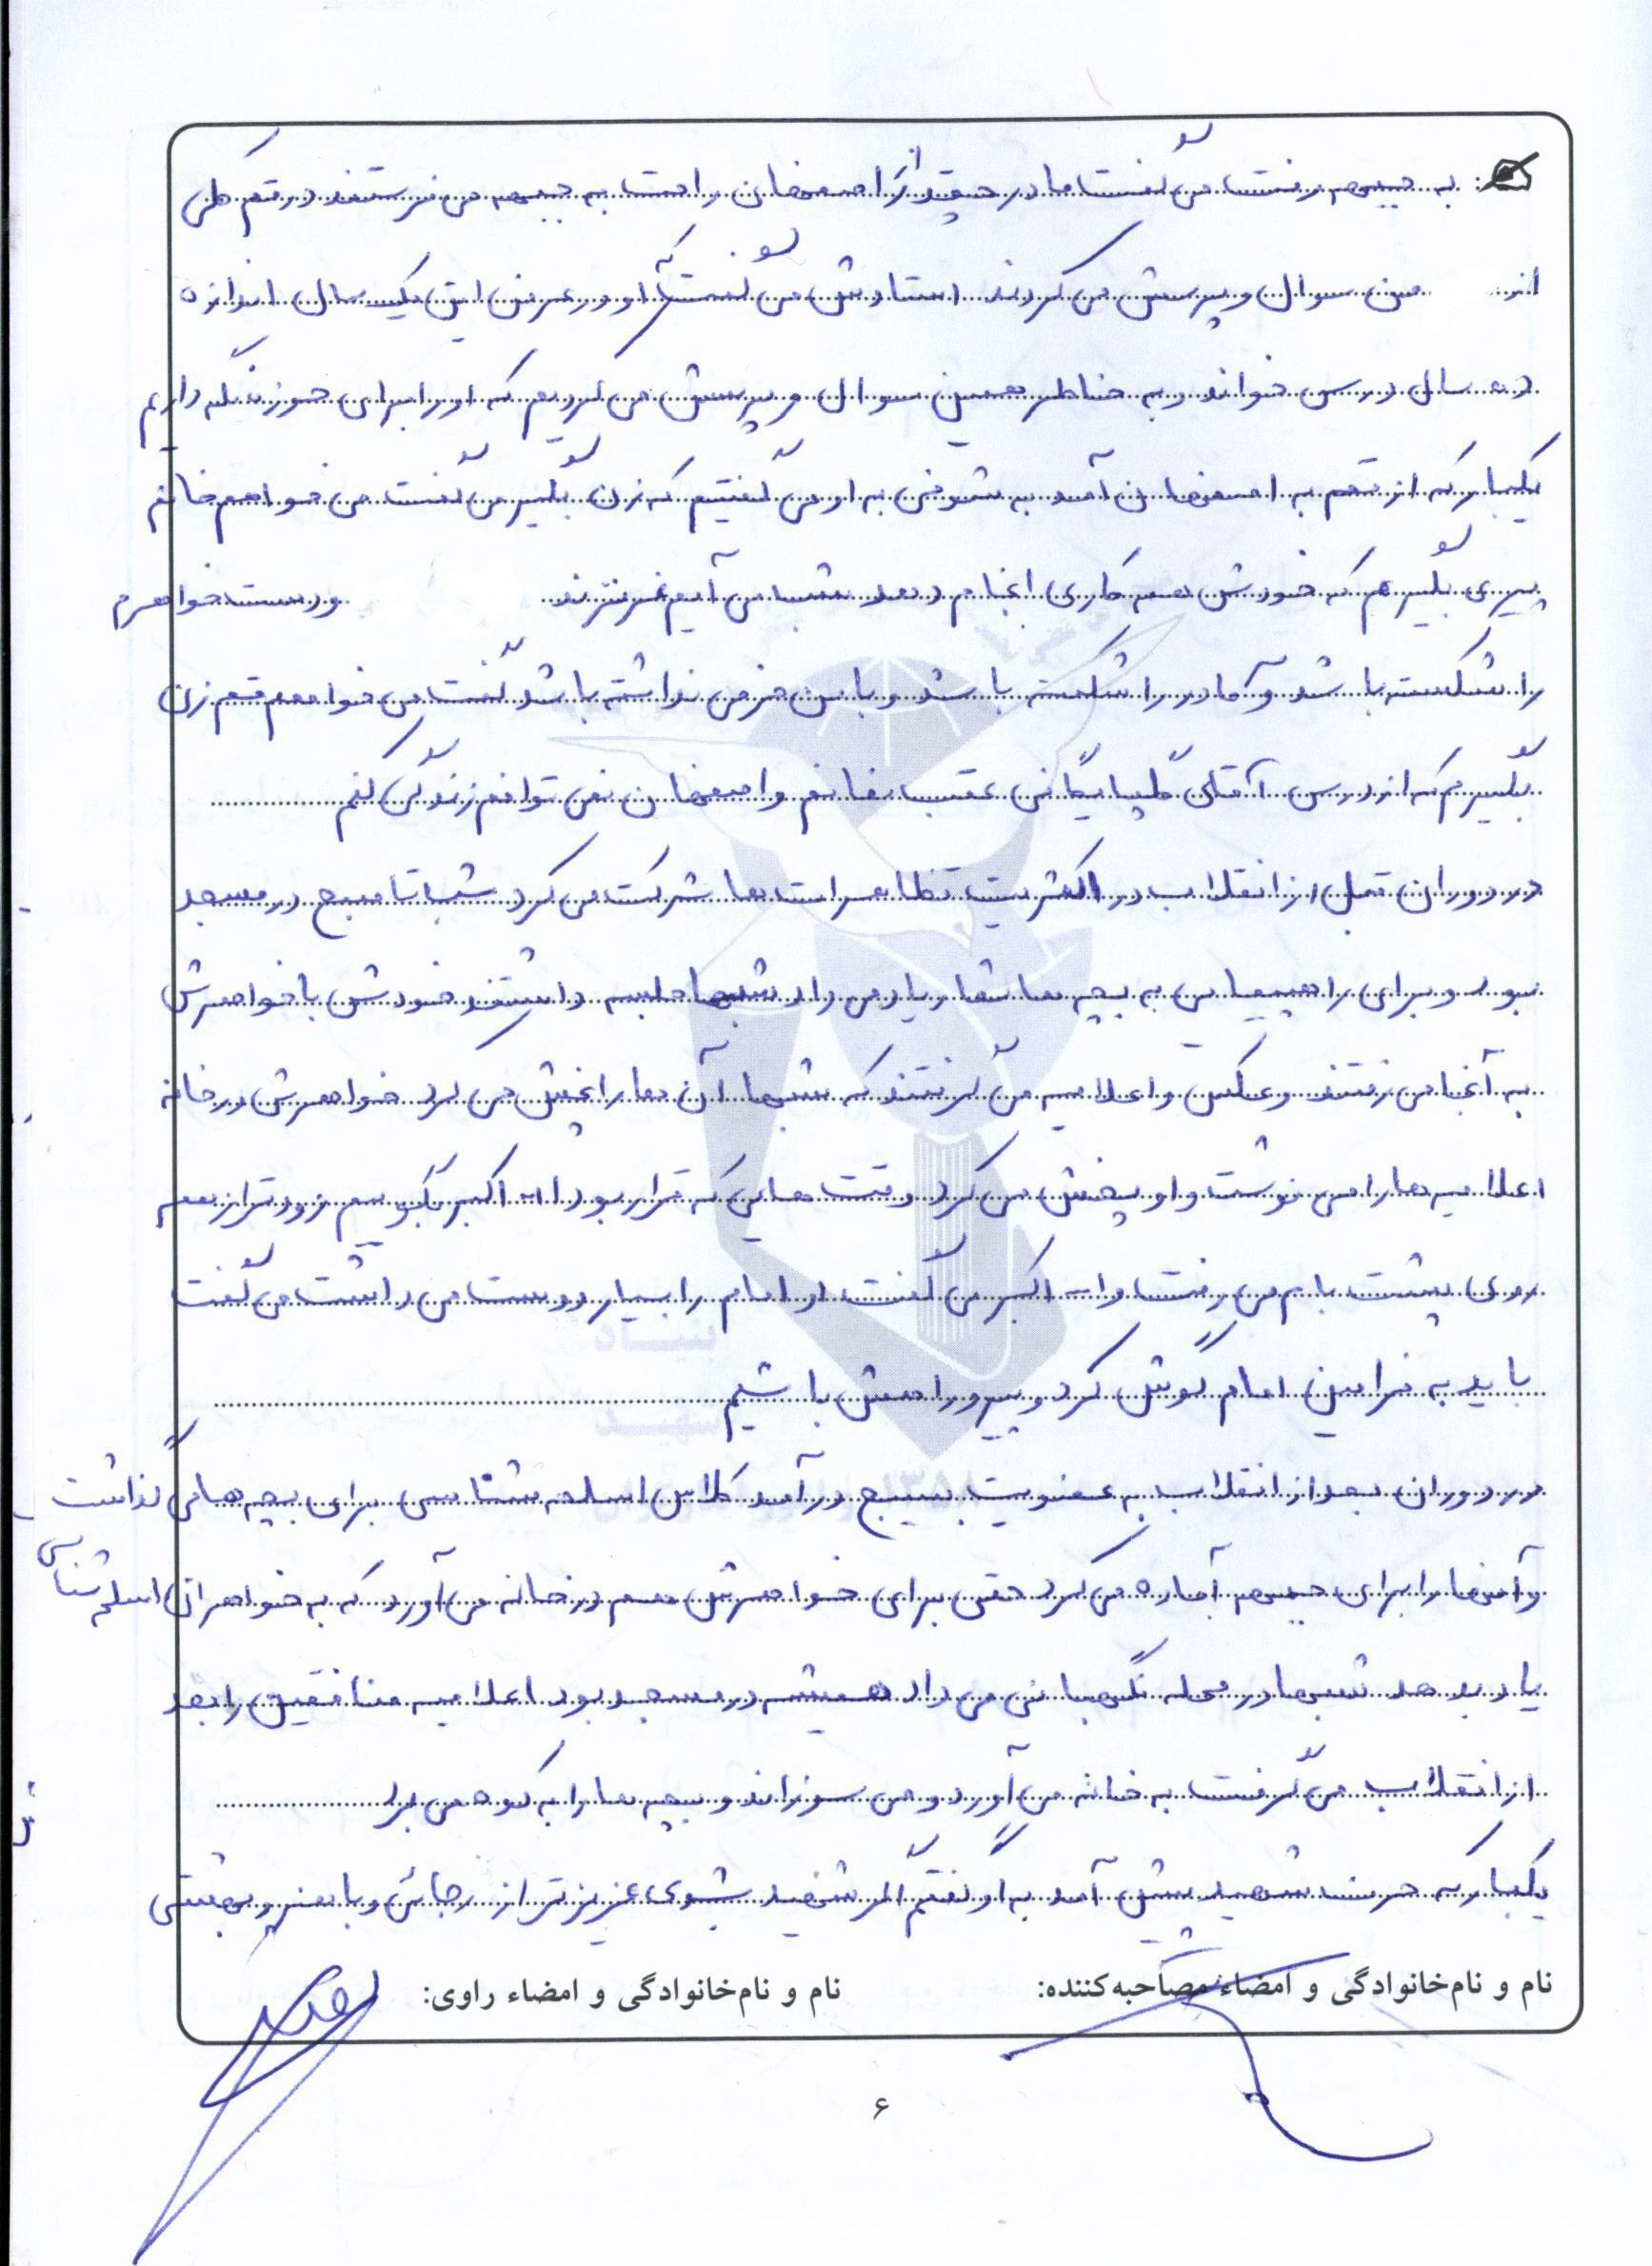 به جبهه رفت می گفت مادر چقدر از اصفهان راحت به جبهه می فرستند در قم کلی
از من سوال و پرسش می کردند استادش می گفت که او در عرض این یک سال اندازه
ده سال درس خواند و به خاطر همین سوال و پرسش می کردیم که او را برای حوزه نگه داریم
یکبار که از قم به اصفهان آمد به شوخی به او می گفتیم که زن بگیر می گفت می خواهم خانم
پیری بگیرم که خودش همه کاری انجام دهد شب می آیم غر نزند و دست خواهرم
را شکسته باشد و مادر را شکسته باشد و با من فرقی نداشته باشد گفت می خواهم قم زن
بگیرم که از درس آقای گلپایگانی عقب نمانم و اصفهان نمی توانم زندگی کنم
در دوران قبل از انقلاب در اکثریت تظاهرات ها شرکت می کرد شب تا صبح در مسجد
بود و برای راهپیمایی به بچه ها شعار یاد می داد شبها جلسه داشتند خودش با خواهرش
به آنجا می رفتند و عکس و اعلامیه می گرفتند که شبها آن ها را پخش می کرد خواهرش در خانه
اعلامیه ها را می نوشت و او پخش می کرد وقت هایی که قرار بود الله اکبر بگوییم زودتر از همه
روی پشت بام می رفت و الله اکبر می گفت او امام را بسیار دوست می داشت می گفت
باید به فرامین امام گوش کرد و پیرو راهش باشیم
در دوران بعد از انقلاب به عضویت بسیج درآمد کلاس اسلحه شناسی برای بچه ها می گذاشت
و آنها را برای جبهه آماده می کرد حتی برای خواهرش هم در خانه می آورد که به خواهران اسلحه شناسی
یاد بدهد شبها در محله نگهبانی می داد همیشه در مسجد بود اعلامیه منافقین را بعد
از انقلاب می گرفت به خانه می آورد و می سوزاند و بچه ها را به کوه می برد
یکبار که حرف شهید پیش آمد به او گفتم اگر شهید بشوی عزیزتر از رجائی و باهنر و بهشتی
نام و نام‌خانوادگی و امضاء مصاحبه‌کننده: نام و نام‌خانوادگی و امضاء راوی:
۶